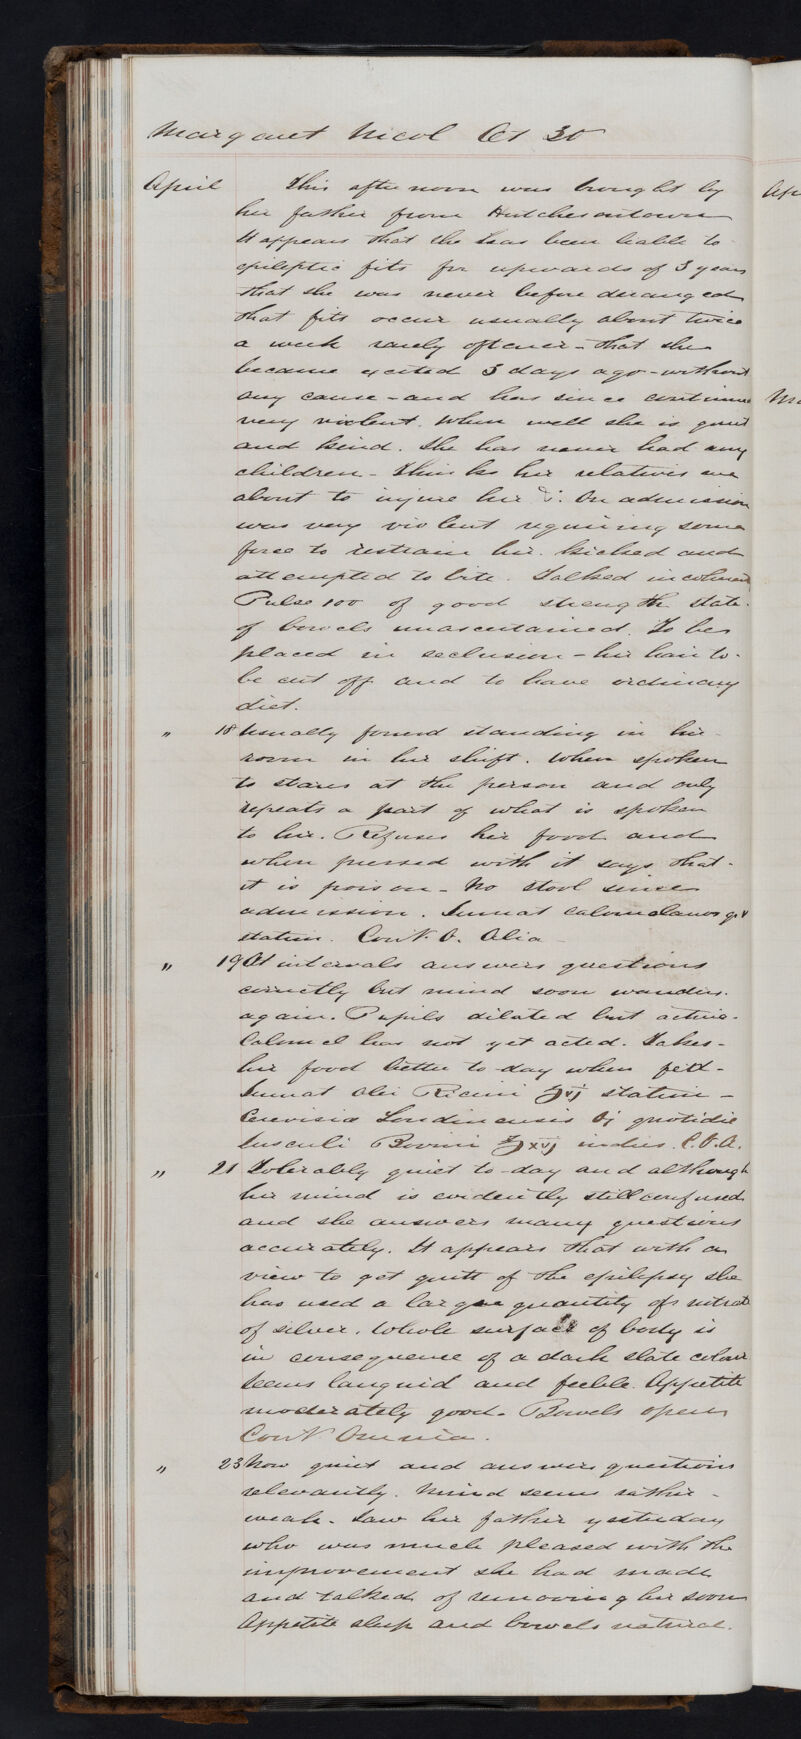 Margaret Nicol Æt 30
April This afternoon was brought by
her father from Hutchesontown
It appears that she has been liable to
epileptic fits for upwards of 3 years
that she was never before deranged
that fits occur usually about twice
a week rarely oftener - that she
became excited 3 days ago - without
any cause - and has since continued
very violent. When well she is quiet
and kind. She has never had any
children - Thinks her relatives are
about to injure her &c. On admission
was very violent requiring some
force to restrain her. kicked and
attempted to bite. Talked incoherent
Pulse 100 of good strength State
of bowels unascertained. To be
placed in seclusion - her hair to
be cut off and to have ordinary
diet.
" 18 Usually found standing in her
room in her shift. When spoken
to stares at the person and only
repeats a part of what is spoken
to her. Refuses her food and
when pressed with it says that
it is poison - No stool since
admission. Sumat Calomelanos gr V
statim. Cont. O. Alia
" 19 At intervals answers questions
correctly but mind soon wanders
again. Pupils dilated but active.
Calomel has not yet acted. Takes
her food better to-day when fed -
Sumat Olei Ricini ʒvj statim -
Cerevisia Londinensis ℔j quotidie
Jusculi Bovini ℥xvj indies. C.O.A.
" 21 Tolerably quiet to-day and although
her mind is evidently still confused
and she answers many questions
accurately. It appears that with a
view to get quitt of the epilepsy she
has used a large quantity of nitrate
of silver. Whole surface of body is
in consequence of a dark slate colour
Seems languid and feeble. Appetite
moderately good. Bowels open
Cont Omnia.
" 23 Now quiet and answers questions
relevantly. Mind seems rather
weak. Saw her father yesterday
who was much pleased with the
improvement she had made
and talked of removing her soon
Appetite sleep and bowels natural.